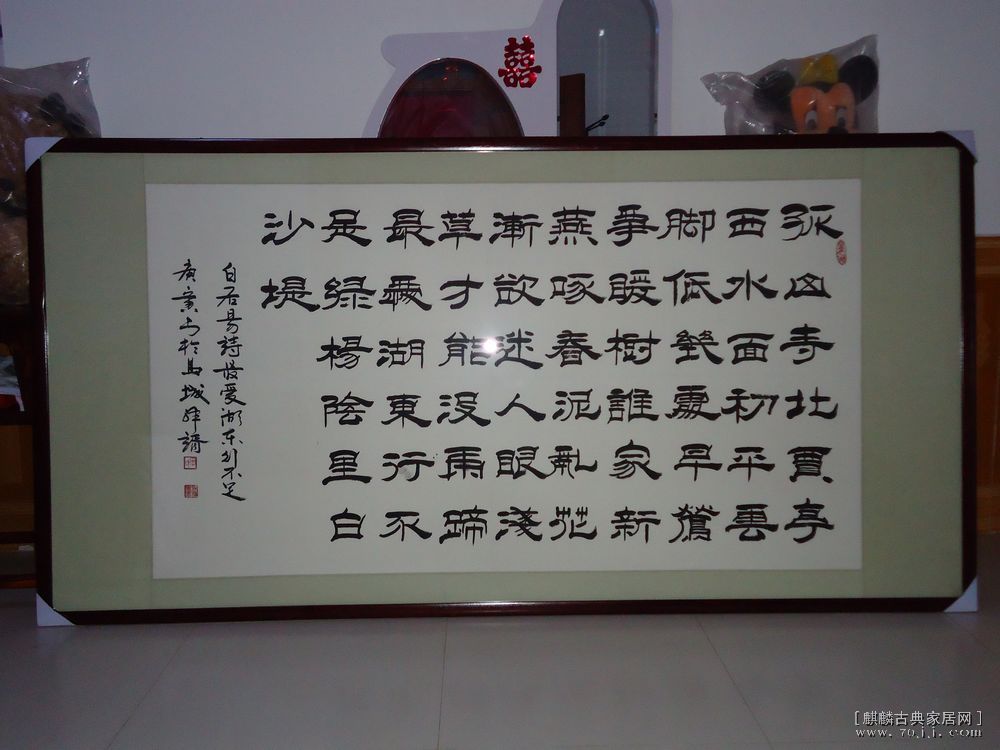 孤山寺北賈亭
西水面初平雲
脚低幾處早鶯
爭暖樹誰家新
燕啄春泥亂花
漸欲迷人眼淺
草才能没雨蹄
最愛湖東行不
是綠楊陰里白
沙堤
白居易詩最愛湖東行不足
庚寅 於 城
囍
[麒麟古典家居网]
www.70jj.com